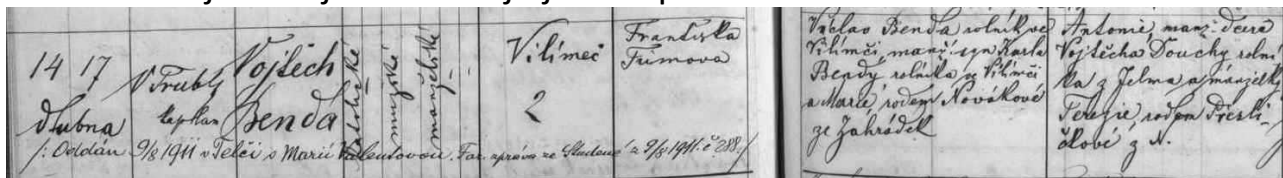 14 17
dubna
V. Trubý
kaplan
Vojtěch
Benda
katolické
mužské
manželské
Vilímeč
2
Františka
Tumova
Václav Benda rolník ve
Vilímči, manž. syn Karla
Bendy, rolníka z Vilímči
a Marie, rodem Novákové
ze Zahrádek
Antonie, manž. dcera
Vojtěcha Douchy, rolní-
ka z Jelma a manželky
Terezie, rodem
čkové z N.
/: Oddán 9/8 1911 v Telči s Marií Valentovou. Far. zpráva ze Studené z 9/8 1911. č 288. /